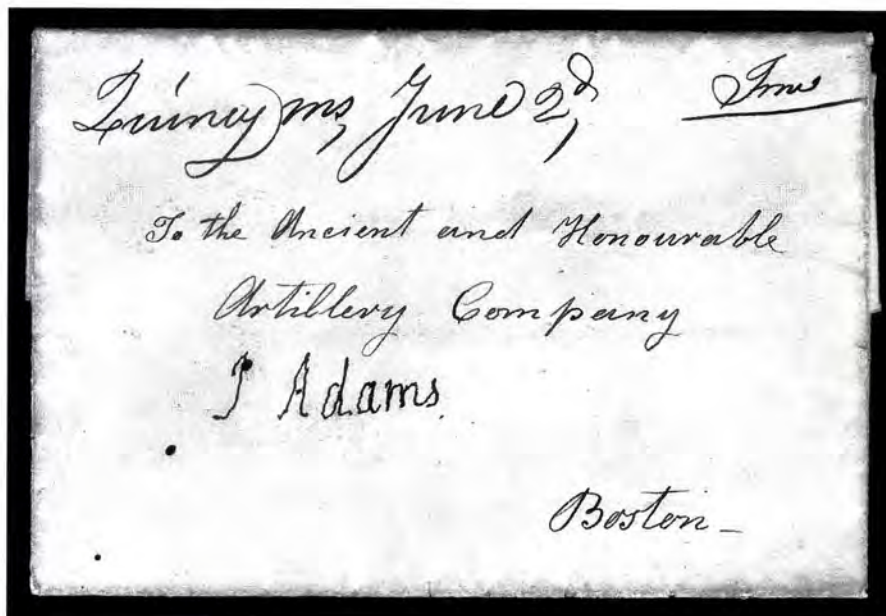 Quincy ms, June 2d, Free
To the Ancient and Honourable
Artillery Company
J Adams.
Boston